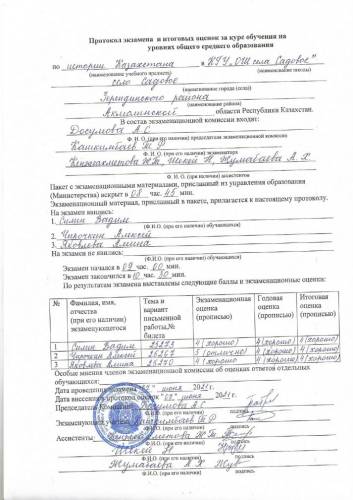 Протокол экзамена и итоговых оценок за курс обучения на
уровнях общего среднего образования
по истории Казахстана в КГУ „ОШ села Садовое"
(наименование учебного предмета) (наименование школы)
село Садовое
(наименование города (села)
Зерендинского района
(наименование района)
Акмолинской области Республики Казахстан.
В состав экзаменационной комиссии входят:
Досумова А С
Ф. И. О. (при его наличии) председателя экзаменационной комиссии
Кашкимбаев Т Р
Ф. И. О. (при его наличии) экзаменатора
Ж Т, Шекей Т, Жумабаева А. Х.
Ф. И. О. (при его наличии) ассистентов
Пакет с экзаменационными материалами, присланный из управления образования
(Министерства) вскрыт в 08 час. 45 мин.
Экзаменационный материал, присланный в пакете, прилагается к настоящему протоколу.
На экзамен явились:
1. Силин Вадим
(Ф.И.О. (при его наличии) обучающихся).
2. Чирочкин Алексей
3. Яковлева Амина
На экзамен не явились:
(Ф.И.О. (при его наличии) обучающихся).
Экзамен начался в 09 час. 00 мин.
Экзамен закончился в 10 час. 30 мин.
По результатам экзамена выставлены следующие баллы и экзаменационные оценки:
№ Фамилия, имя, отчества (при его наличии) экзаменующегося Тема и вариант письменной работы,№ билета Экзаменационная оценка (прописью) Годовая оценка (прописью) Итоговая оценка (прописью)
1 Силин Вадим 4 (хорошо) 4 (хорошо) 4 (хорошо)
2 Чирочкин Алексей 26267 5 (отлично) 4 (хорошо) 4 (хорошо)
3 Яковлева Амина 4 (хорошо) 4 (хорошо) 4 (хорошо)
Особые мнения членов экзаменационной комиссии об оценках ответов отдельных
обучающихся:
Дата проведения июня 2021г.
Дата внесения в протокол оценок июня 2021г.
Председатель Досумова А С
Ф.И.О. (при его наличии) подпись
Экзаменующий учитель Кашкимбаев Т Р
Ф.И.О. (при его наличии) подпись
Ассистенты: Ж Т
Ф.И.О. (при его наличии) подпись
Шекей
Ф.И.О. (при его наличии) подпись
Жумабаева А Х
Ф.И.О. (при его наличии) подпись